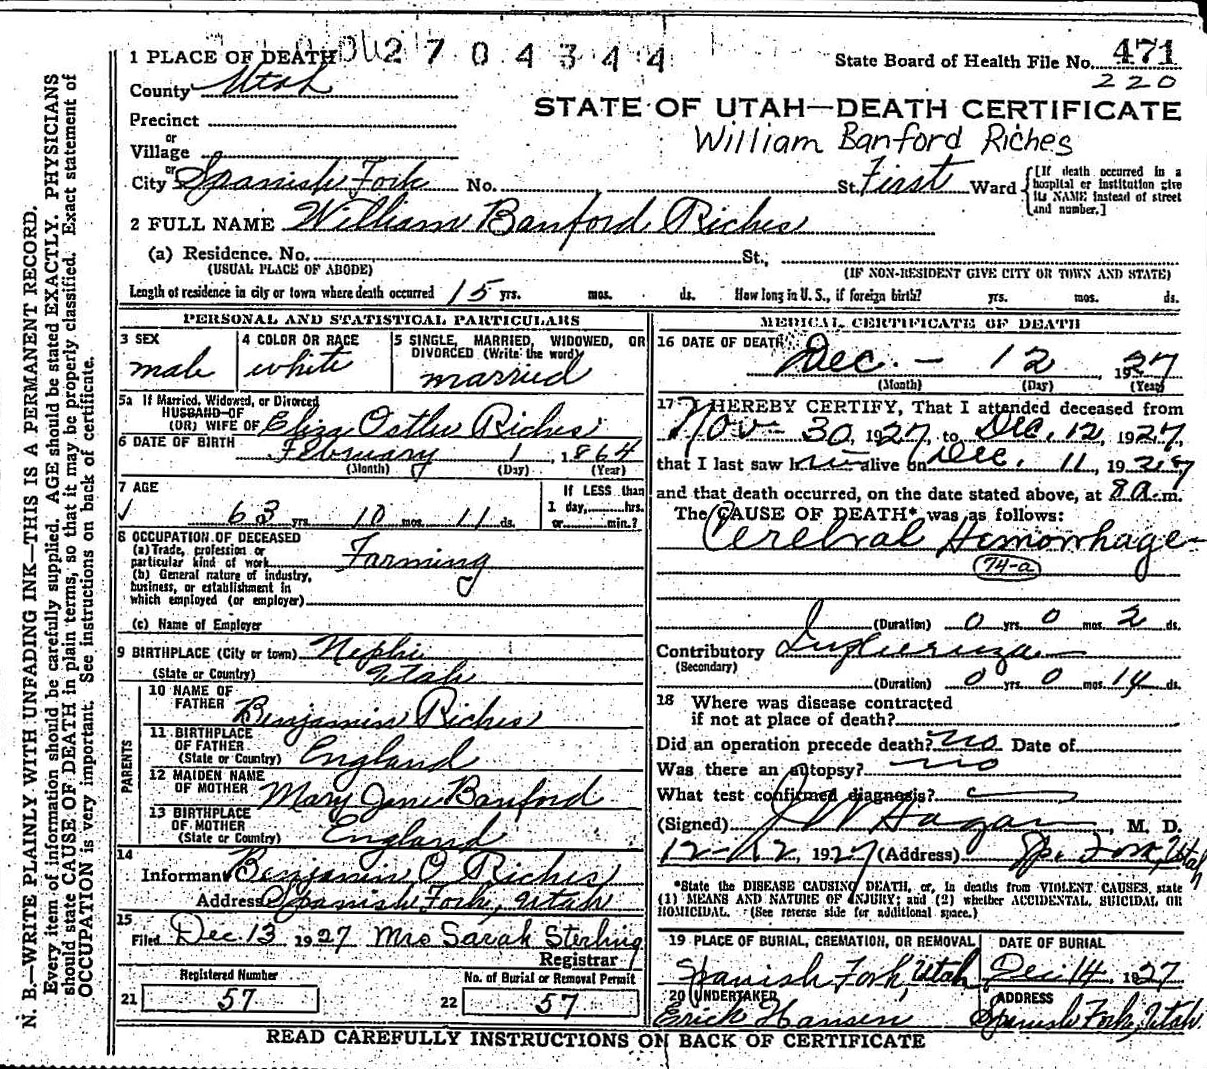 2704344
1 PLACE OF DEATH
State Board of Health File No. 471
220
County Utah
STATE OF UTAH—DEATH CERTIFICATE
Precinct
William Banford Riches
or
Village
or
City Spanish Fork No. St. First Ward
[If death occurred in a hospital or institution give its NAME instead of street and number.]
2 FULL NAME William Banford Riches
(a) Residence. No. St.,
(USUAL PLACE OF ABODE) (IF NON-RESIDENT GIVE CITY OR TOWN AND STATE)
Length of residence in city or town where death occurred 15 yrs. mos. ds. How long in U. S., if foreign birth? yrs. mos. ds.
PERSONAL AND STATISTICAL PARTICULARS
3 SEX
male
4 COLOR OR RACE
white
5 SINGLE, MARRIED, WIDOWED, OR
DIVORCED (Write the word)
married
5a If Married, Widowed, or Divorced
HUSBAND OF
(OR) WIFE OF Eliza Ostler Riches
6 DATE OF BIRTH February 1, 1864
(Month) (Day) (Year)
7 AGE
63 yrs. 10 mos. 11 ds.
If LESS than
1 day, hrs.
or min.?
8 OCCUPATION OF DECEASED
(a) Trade, profession or
particular kind of work Farming
(b) General nature of industry,
business, or establishment in
which employed (or employer)
(c) Name of Employer
9 BIRTHPLACE (City or town) Nephi
(State or Country) Utah
PARENTS
10 NAME OF
FATHER Benjamin Riches
11 BIRTHPLACE
OF FATHER
(State or Country) England
12 MAIDEN NAME
OF MOTHER Mary Jane Banford
13 BIRTHPLACE
OF MOTHER
(State or Country) England
14
Informant Benjamin O Riches
Address Spanish Fork, Utah
15
Filed Dec 13 1927 Mrs Sarah Sterling
Registrar
Registered Number
21 57
No. of Burial or Removal Permit
22 57
MEDICAL CERTIFICATE OF DEATH
16 DATE OF DEATH
Dec. - 12, 1927
(Month) (Day) (Year)
17 I HEREBY CERTIFY, That I attended deceased from
Nov - 30, 1927, to Dec. 12, 1927,
that I last saw him alive on Dec. 11, 1927
and that death occurred, on the date stated above, at 8 a.m.
The CAUSE OF DEATH* was as follows:
Cerebral Hemorrhage
74-a
(Duration) 0 yrs. 0 mos. 2 ds.
Contributory Influenza
(Secondary)
(Duration) 0 yrs. 0 mos. 14 ds.
18 Where was disease contracted
if not at place of death?
Did an operation precede death? no Date of
Was there an autopsy? no
What test confirmed diagnosis?
(Signed) J W Hagan, M. D.
12-12, 1927 (Address) Sp. Fork, Utah
*State the DISEASE CAUSING DEATH, or, in deaths from VIOLENT CAUSES, state
(1) MEANS AND NATURE OF INJURY; and (2) whether ACCIDENTAL, SUICIDAL OR
HOMICIDAL. (See reverse side for additional space.)
19 PLACE OF BURIAL, CREMATION, OR REMOVAL
Spanish Fork, Utah
DATE OF BURIAL
Dec 14, 1927
20 UNDERTAKER
Erick Hansen
ADDRESS
Spanish Fork, Utah
READ CAREFULLY INSTRUCTIONS ON BACK OF CERTIFICATE
N. B.—WRITE PLAINLY WITH UNFADING INK—THIS IS A PERMANENT RECORD.
Every item of information should be carefully supplied. AGE should be stated EXACTLY. PHYSICIANS
should state CAUSE OF DEATH in plain terms, so that it may be properly classified. Exact statement of
OCCUPATION is very important. See instructions on back of certificate.